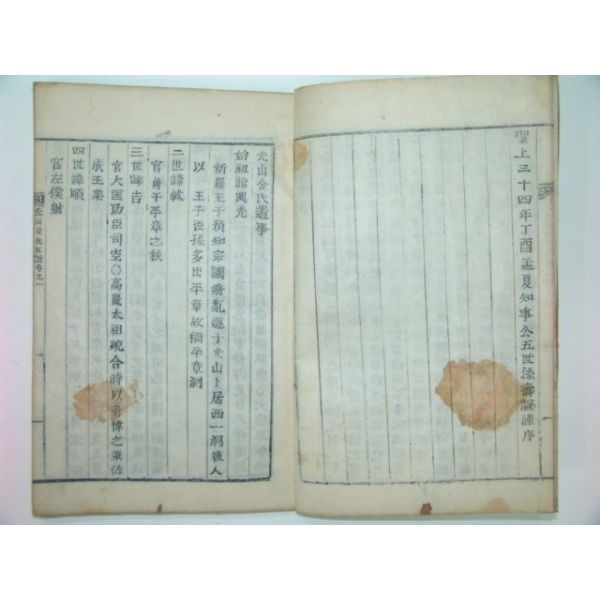 上三十四年丁酉孟夏知事公五世孫壽謹序
光山金氏遺事
始祖諱興光
新羅王子預知宗國將亂遯于光山下居西一洞後人
以 王子後孫多出平章故稱平章洞
二世諱軾
官角干平章之秩
三世諱吉
官大匡功臣司空〇高麗太祖統合時以奇偉之東佐
成王業
四世諱順
官左僕射